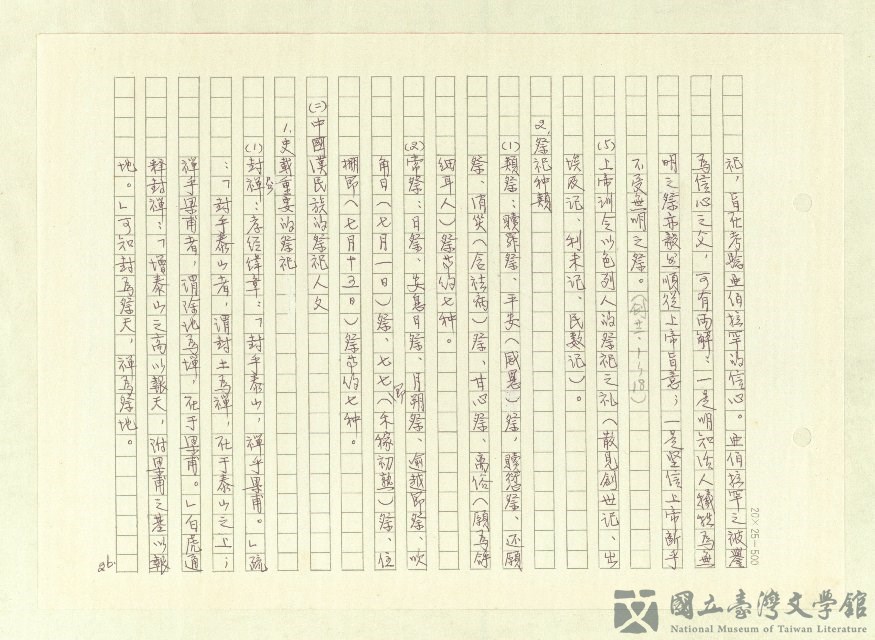 祀，旨在考驗亞伯拉罕的信心。亞伯拉罕之被譽
為信心之父，可有兩解：一是明知活人犧牲為無
明之祭亦毅然順從上帝旨意；一是堅信上帝斷乎
不受無明之祭。（創廿二，1～18）
(5)上帝訓令以色列人的祭祀之礼（散見創世記、出
埃及記、利未記、民數記）。
2.祭祀种類
(1)類祭：贖罪祭、平安（感恩）祭，贖愆祭、还願
祭、消災（含祛病）祭、甘心祭、离俗（願為拿
細耳人）祭等約七种。
(2)常祭：日祭、安息日祭、月朔祭、逾越節祭、吹
角日（七月一日）祭、七七節（禾稼初熟）祭、住
棚節（七月十五日）祭等約七种。
(二)中國漢民族的祭祀人文
1.史載重要的祭祀
(1)封禪：孝经緯章：「封乎泰山，禪乎梁甫。」疏
：「封乎泰山者，謂封土為禪，在于泰山之上；
禪乎梁甫者，謂除地為墠，在于梁甫。」白虎通
釋封禪：「增泰山之高以報天，附梁甫之基以報
地。」可知封為祭天，禪為祭地。
26
20×25=500
國立臺灣文學館
National Museum of Taiwan Literature